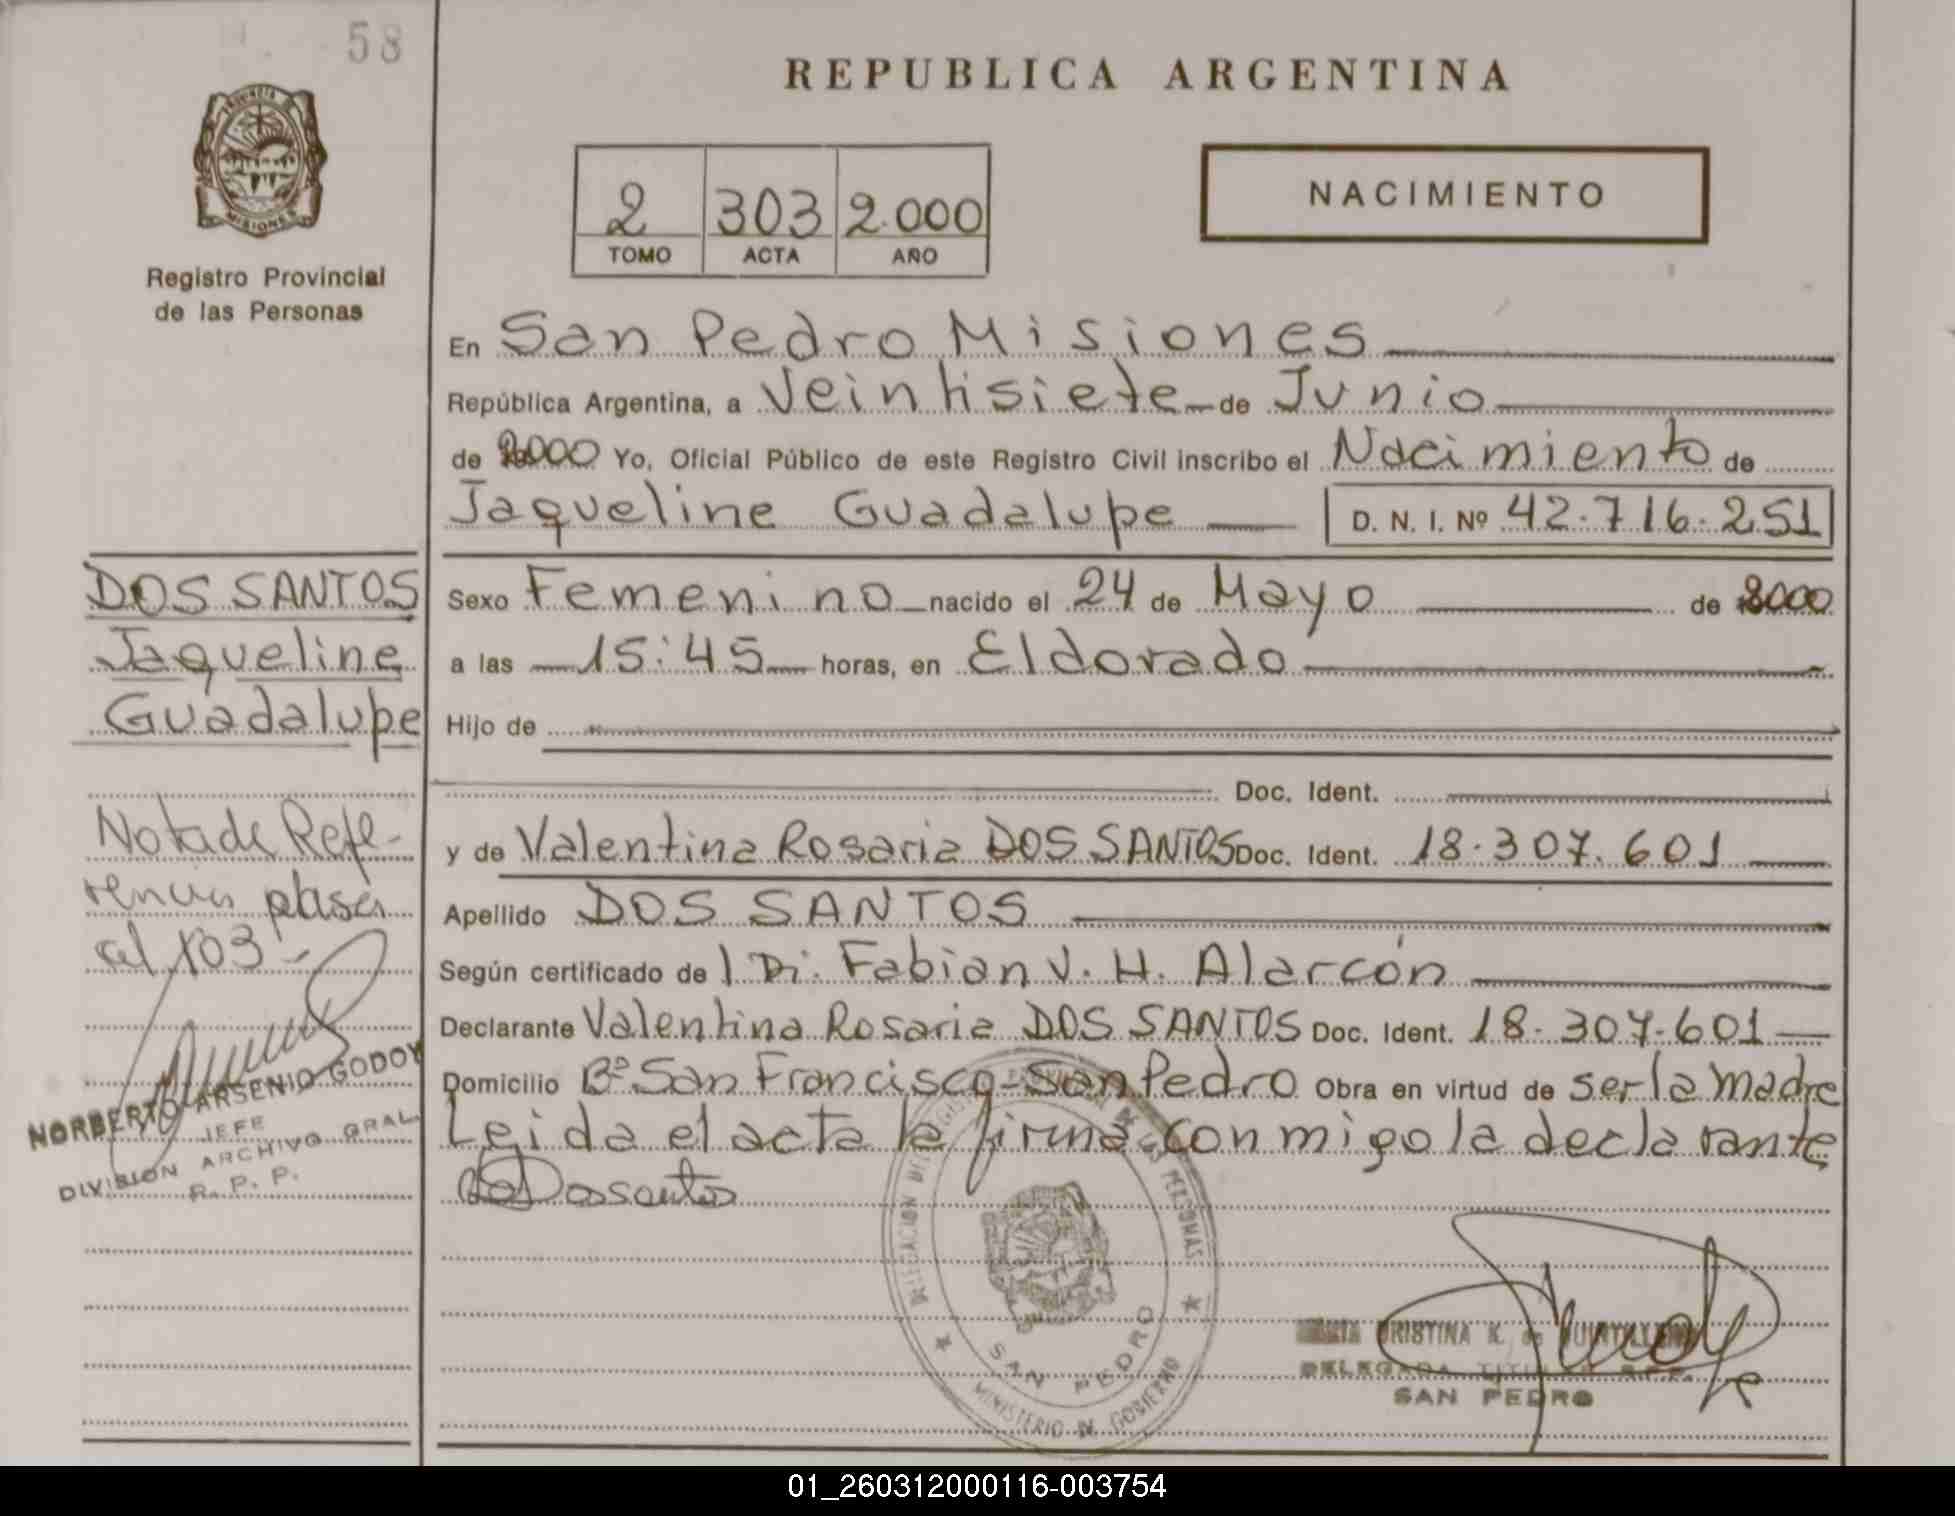 58
REPUBLICA ARGENTINA
PROVINCIA DE
MISIONES
Registro Provincial
de las Personas
2 303 2.000
TOMO ACTA AÑO
NACIMIENTO
En San Pedro Misiones
República Argentina, a Veintisiete de Junio
de 2000 Yo, Oficial Público de este Registro Civil inscribo el Nacimiento de
Jaqueline Guadalupe D. N. I. Nº 42.716.251
DOS SANTOS
Jaqueline
Guadalupe
Sexo Femenino nacido el 24 de Mayo de 2000
a las 15:45 horas, en Eldorado
Hijo de
Doc. Ident.
y de Valentina Rosaria DOS SANTOS Doc. Ident. 18.307.601
Apellido DOS SANTOS
Según certificado de Dr. Fabian V. H. Alarcón
Declarante Valentina Rosaria DOS SANTOS Doc. Ident. 18.307.601
Domicilio Bº San Francisco-San Pedro Obra en virtud de ser la madre
Leida el acta la firma conmigo la declarante
Dossantos
Nota de Refe-
rencia
al 103-
NORBERTO ARSENIO GODOY
JEFE
DIVISION ARCHIVO GRAL.
R. P. P.
DELEGACION DEL REGISTRO PROVINCIAL DE LAS PERSONAS
SAN PEDRO
MINISTERIO DE GOBIERNO
CRISTINA K. de
DELEGADA TITULAR R.P.P.
SAN PEDRO
01_260312000116-003754